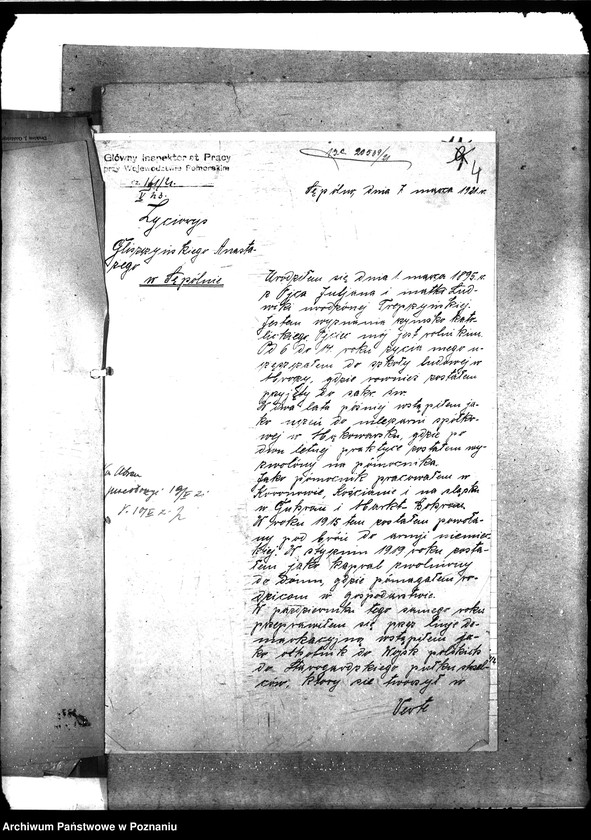 Główny Inspektorat Pracy
przy Województwie Pomorskim
Sępólno, dnia 7 marca 1921 r.
4
Życiorys
Anasta-
zego
w Sępólnie
Urodziłem się dnia 1 marca 1895 r.
z Ojca Juljana i matki Lud-
wiki urodzonej
Jestem wyznania rzymsko kato-
lickiego. Ojciec mój jest rolnikiem.
Od 6 do 14 roku życia mego u-
częszczałem do szkoły ludowej w
gdzie również zostałem
przyjęty do sakr. św.
W dwa lata później wstąpiłem ja-
ko uczeń do mleczarni spółko-
wej w Mąkowarsku, gdzie po
dwu letniej praktyce zostałem wy-
zwolony na pomocnika.
Jako pomocnik pracowałem w
Koronowie, Kościanie i na Śląsku
w Guhrau i Markt-
W roku 1915 tem zostałem powoła-
ny pod broń do armji niemiec-
kiej. W styczniu 1919 roku zosta-
łem jako kapral zwolniony
do domu, gdzie pomagałem ro-
dzicom w gospodarstwie.
W październiku tego samego roku
przeprawiłem się przez linję de-
markacyjną wstąpiłem ja-
ko ochotnik do Wojsk polskich
do Starogardzkiego pułku strzel-
ców, który się tworzył w
Verte
Archiwum Państwowe w Poznaniu